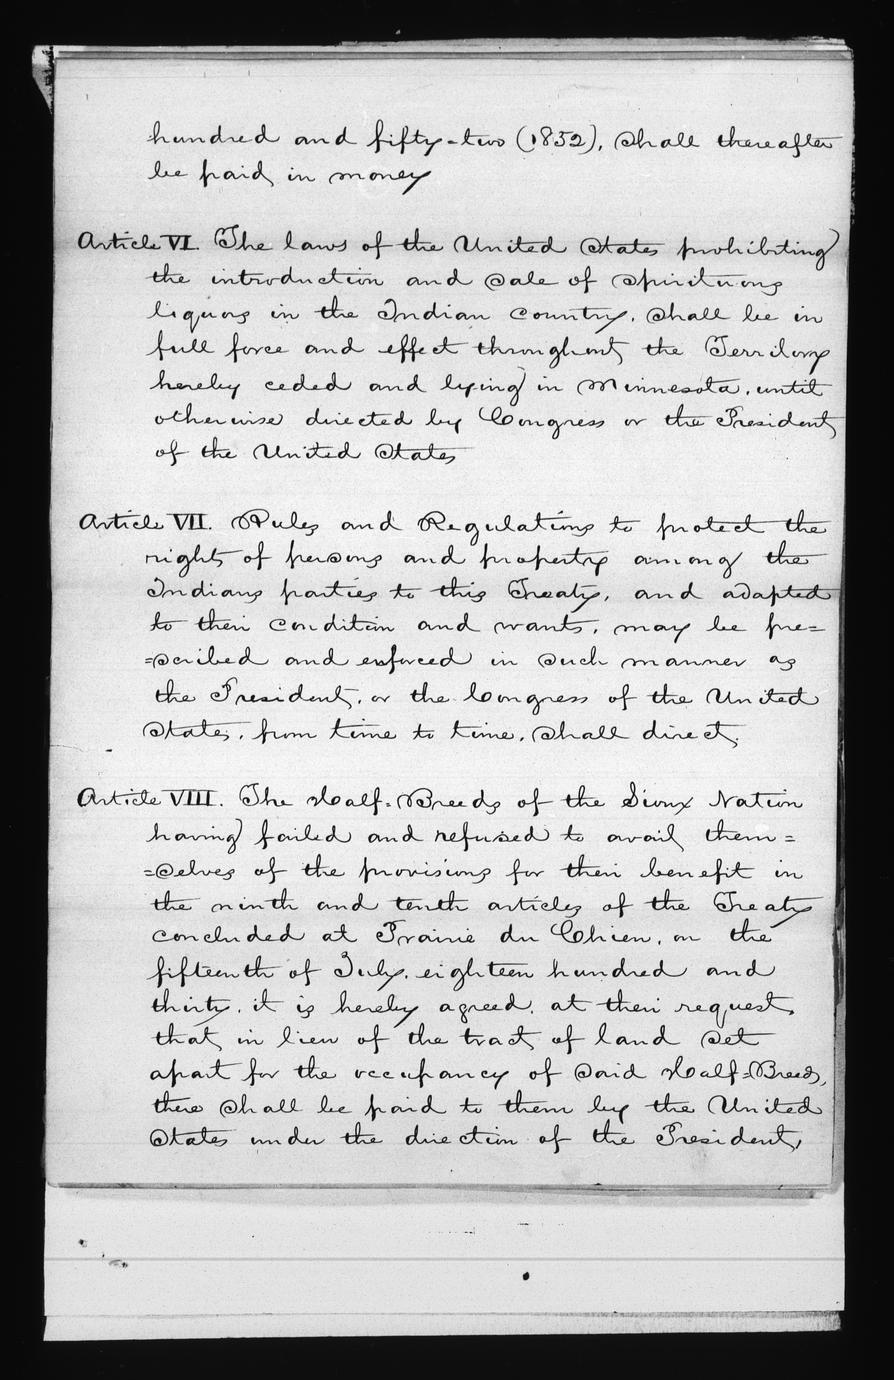 hundred and fifty-two (1852), shall thereafter
be paid in money
Article VI. The laws of the United States prohibiting
the introduction and sale of spirituous
liquors in the Indian country, shall be in
full force and effect throughout the Territory
hereby ceded and lying in Minnesota, until
otherwise directed by Congress or the President
of the United States
Article VII. Rules and Regulations to protect the
rights of persons and property among the
Indians parties to this Treaty, and adapted
to their condition and wants, may be pre=
=scribed and enforced in such manner as
the President, or the Congress of the United
States, from time to time, shall direct.
Article VIII. The Half=Breeds of the Sioux Nation
having failed and refused to avail them=
=selves of the provisions for their benefit in
the ninth and tenth articles of the Treaty
concluded at Prairie du Chien, on the
fifteenth of July, eighteen hundred and
thirty, it is hereby agreed, at their request,
that, in lieu of the tract of land set
apart for the occupancy of said Half=Breeds,
there shall be paid to them by the United
States under the direction of the President,